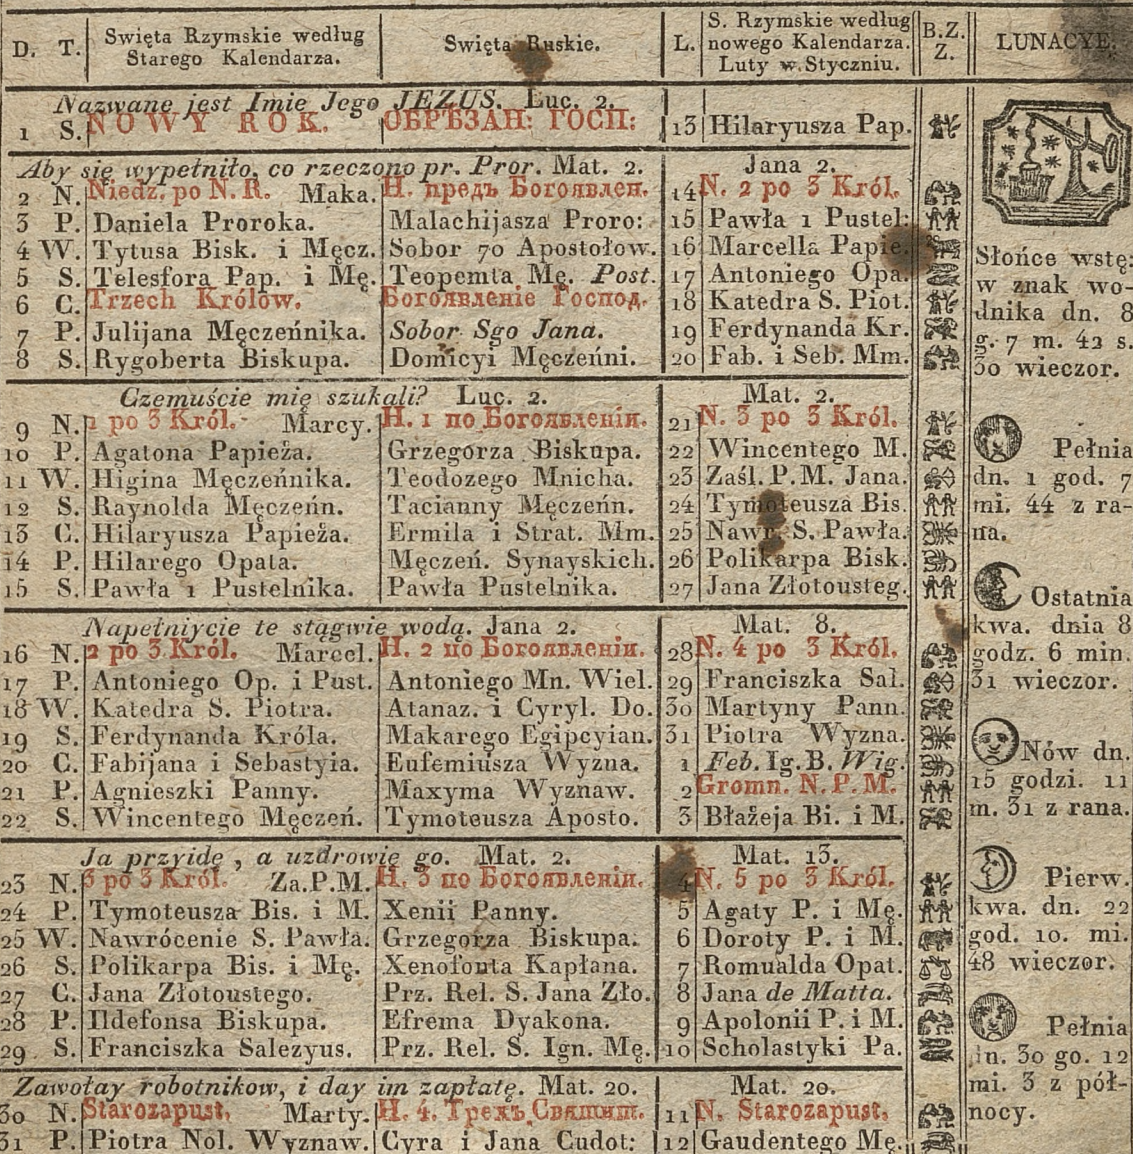 D. T. Swięta Rzymskie według Starego Kalendarza. Swięta Ruskie. L. S. Rzymskie według nowego Kalendarza. Luty w Styczniu. B.Z. Z. LUNACYE.
Nazwane jest Imie Jego JEZUS. Luc. 2.
1 S. NOWY ROK. ОБРѢЗАН: ГОСП: 13 Hilaryusza Pap.
Aby się wypełniło, co rzeczono pr. Pror. Mat. 2. Jana 2.
2 N. Niedz. po N. R. Maka. Н. предъ Богоявлен. 14 N. 2 po 3 Król.
3 P. Daniela Proroka. Malachijasza Proro: 15 Pawła 1 Pustel:
4 W. Tytusa Bisk. i Męcz. Sobor 70 Apostołow. 16 Marcella Papie.
5 S. Telesfora Pap. i Mę. Teopemta Mę. Post. 17 Antoniego Opa.
6 C. Trzech Królow. Богоявленіе Господ. 18 Katedra S. Piot.
7 P. Julijana Męczeńnika. Sobor Sgo Jana. 19 Ferdynanda Kr.
8 S. Rygoberta Biskupa. Domicyi Męczeńni. 20 Fab. i Seb. Mm.
Czemuście mię szukali? Luc. 2. Mat. 2.
9 N. 1 po 3 Król. Marcy. Н. 1 по Богоявленіи. 21 N. 3 po 3 Król.
10 P. Agatona Papieża. Grzegorza Biskupa. 22 Wincentego M.
11 W. Higina Męczeńnika. Teodozego Mnicha. 23 Zaśl. P. M. Jana.
12 S. Raynolda Męczeńn. Tacianny Męczeńn. 24 Tymoteusza Bis.
13 C. Hilaryusza Papieża. Ermila i Strat. Mm. 25 Nawr. S. Pawła.
14 P. Hilarego Opata. Męczeń. Synayskich. 26 Polikarpa Bisk.
15 S. Pawła 1 Pustelnika. Pawła Pustelnika. 27 Jana Złotousteg.
Napełniycie te stągwie wodą. Jana 2. Mat. 8.
16 N. 2 po 3 Król. Marcel. Н. 2 по Богоявленіи. 28 N. 4 po 3 Król.
17 P. Antoniego Op. i Pust. Antoniego Mn. Wiel. 29 Franciszka Sal.
18 W. Katedra S. Piotra. Atanaz. i Cyryl. Do. 30 Martyny Pann.
19 S. Ferdynanda Króla. Makarego Egipcyian. 31 Piotra Wyzna.
20 C. Fabijana i Sebastyia. Eufemiusza Wyzna. 1 Feb. Ig. B. Wig.
21 P. Agnieszki Panny. Maxyma Wyznaw. 2 Gromn. N. P. M.
22 S. Wincentego Męczeń. Tymoteusza Aposto. 3 Błażeja Bi. i M.
Ja przyidę, a uzdrowię go. Mat. 2. Mat. 13.
23 N. 3 po 3 Król. Za.P.M. Н. 3 по Богоявленіи. 4 N. 5 po 3 Król.
24 P. Tymoteusza Bis. i M. Xenii Panny. 5 Agaty P. i Mę.
25 W. Nawrócenie S. Pawła. Grzegorza Biskupa. 6 Doroty P. i M.
26 S. Polikarpa Bis. i Mę. Xenofonta Kapłana. 7 Romualda Opat.
27 C. Jana Złotoustego. Prz. Rel. S. Jana Zło. 8 Jana de Matta.
28 P. Ildefonsa Biskupa. Efrema Dyakona. 9 Apolonii P. i M.
29 S. Franciszka Salezyus. Prz. Rel. S. Ign. Mę. 10 Scholastyki Pa.
Zawołay robotnikow, i day im zapłatę. Mat. 20. Mat. 20.
30 N. Starozapust. Marty. Н. 4. Трехъ Святит. 11 N. Starozapust.
31 P. Piotra Nol. Wyznaw. Cyra i Jana Cudot: 12 Gaudentego Mę.
Słońce wstę:
w znak wo-
dnika dn. 8
g. 7 m. 42 s.
30 wieczor.
Pełnia
dn. 1 god. 7
mi. 44 z ra-
na.
Ostatnia
kwa. dnia 8
godz. 6 min.
31 wieczor.
Nów dn.
15 godzi. 11
m. 31 z rana.
Pierw.
kwa. dn. 22
god. 10. mi.
48 wieczor.
Pełnia
dn. 30 go. 12
mi. 3 z pół-
nocy.